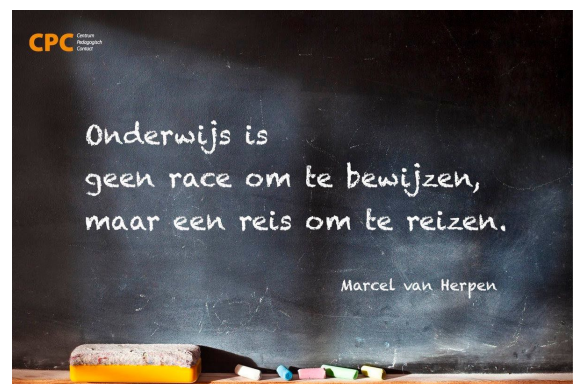 CPC Centrum
Pedagogisch
Contact
Onderwijs is
geen race om te bewijzen,
maar een reis om te reizen.
Marcel van Herpen